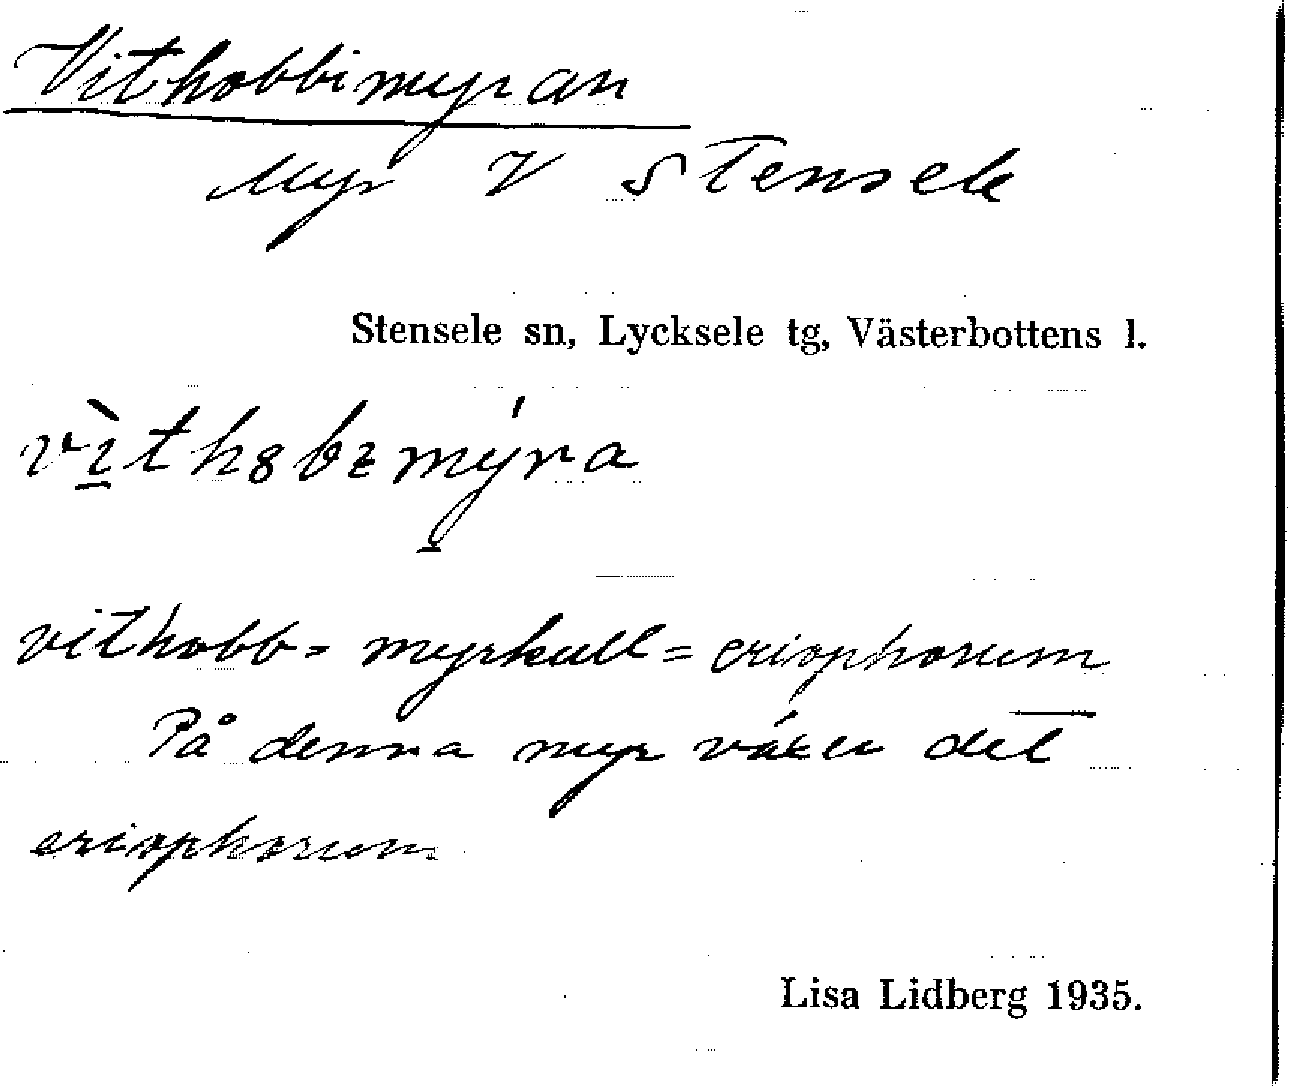 Vithobbimyran
Myr V Stensele
Stensele sn, Lycksele tg, Västerbottens l.
vìth8bɪmy̍ra
vithobb = myrkull = eriophorum
På denna myr växer det
eriophorum
Lisa Lidberg 1935.